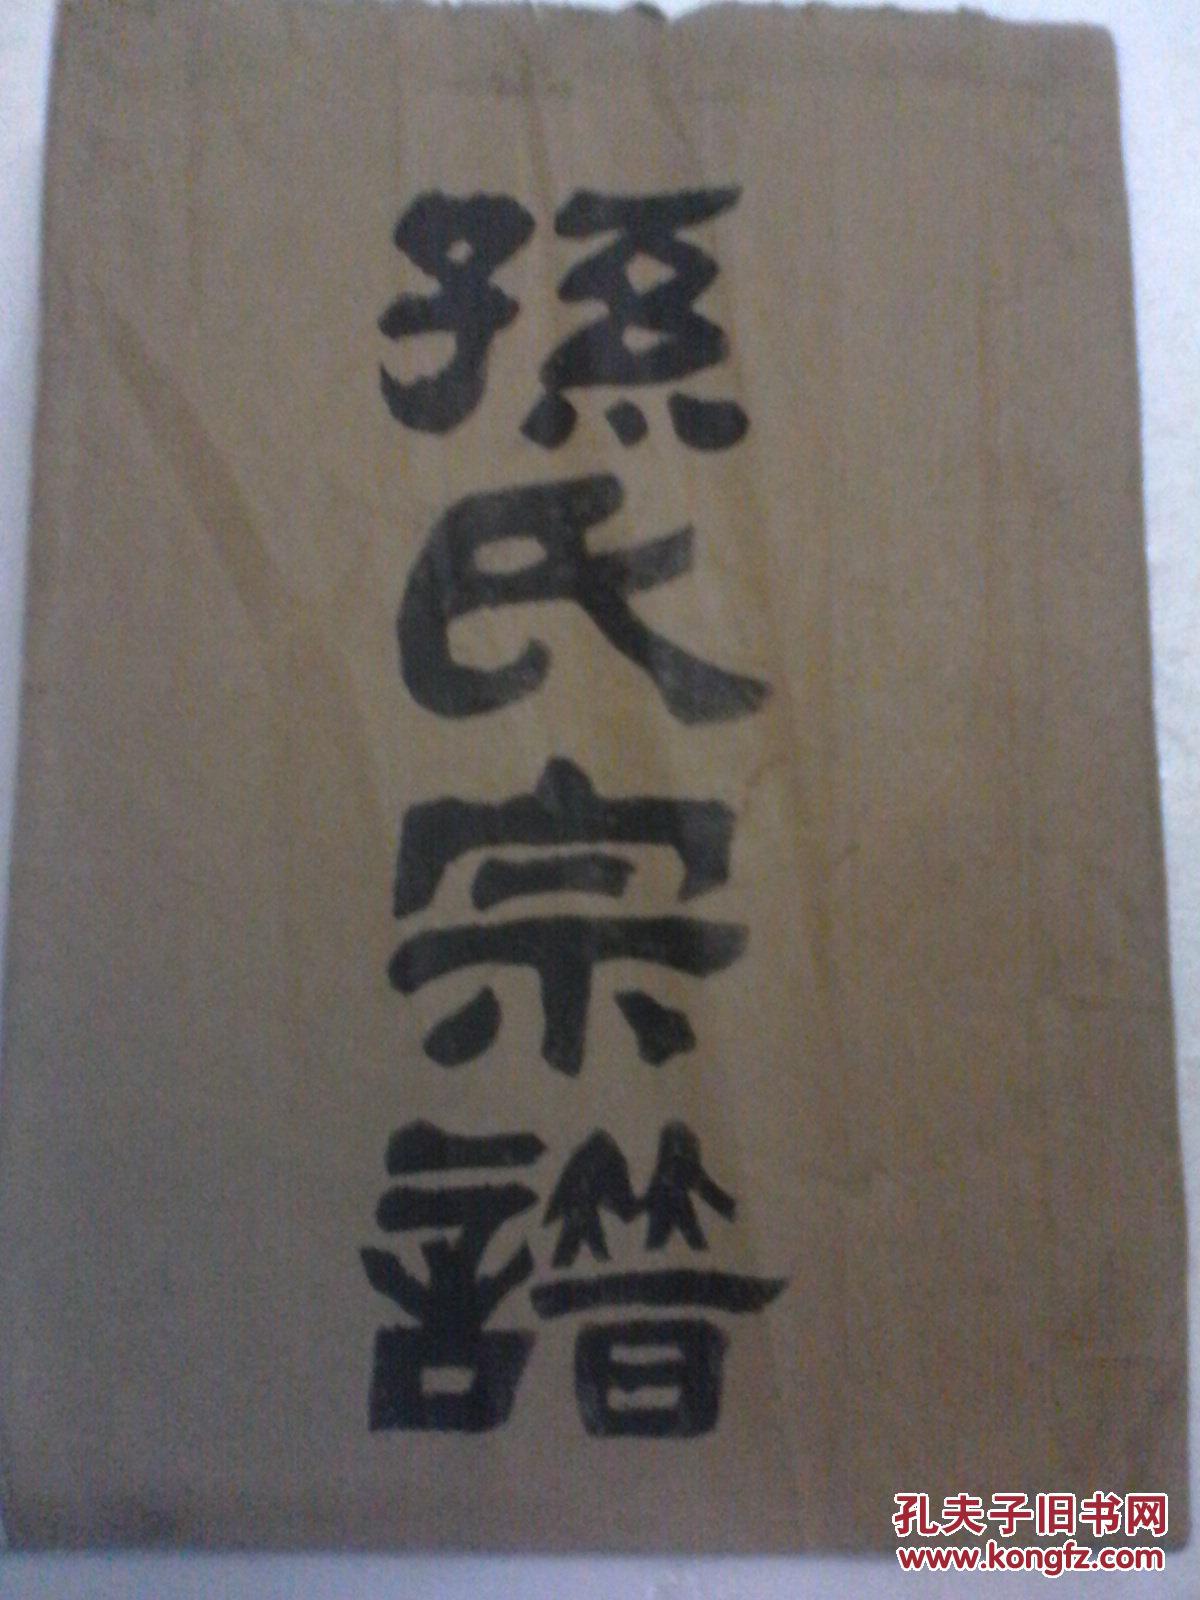 孫氏宗譜
孔夫子旧书网
www.kongfz.com